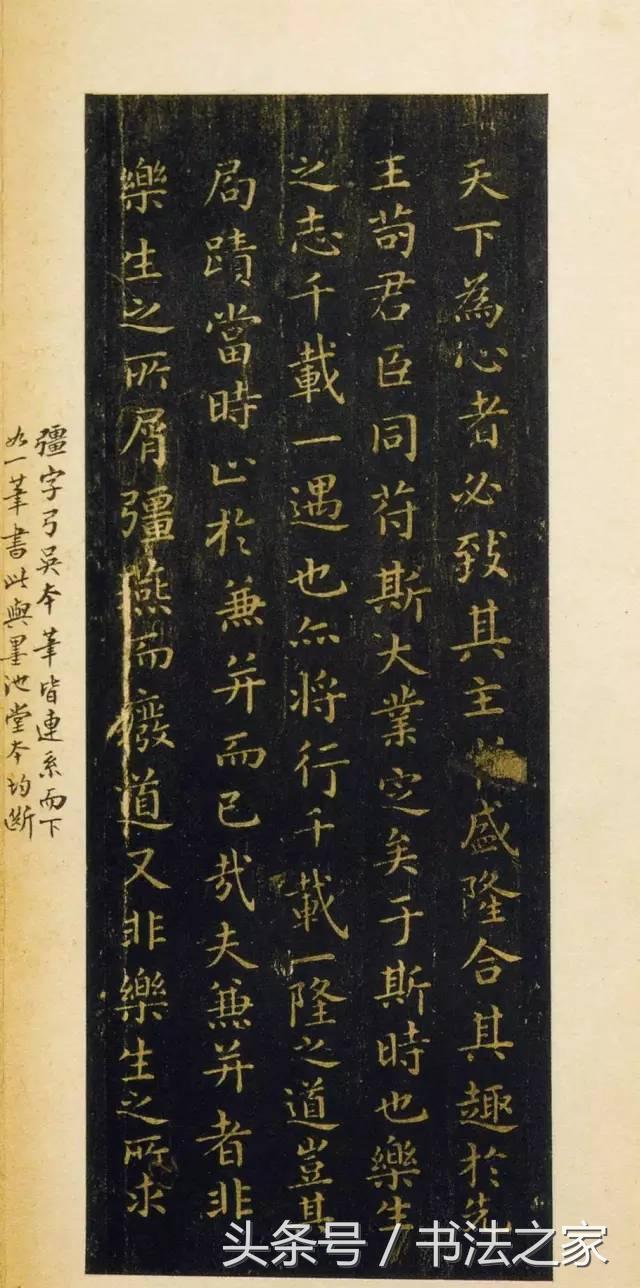 天下為心者必致其主盛隆合其趣於先
王苟君臣同苻斯大業定矣于斯時也樂生
之志千載一遇也亦將行千載一隆之道豈其
局蹟當時止於兼并而已哉夫兼并者非
樂生之所屑彊燕而廢道又非樂生之所求
彊字弓吳本筆皆連系而下
如一筆書此與墨池堂本均斷
头条号 / 书法之家